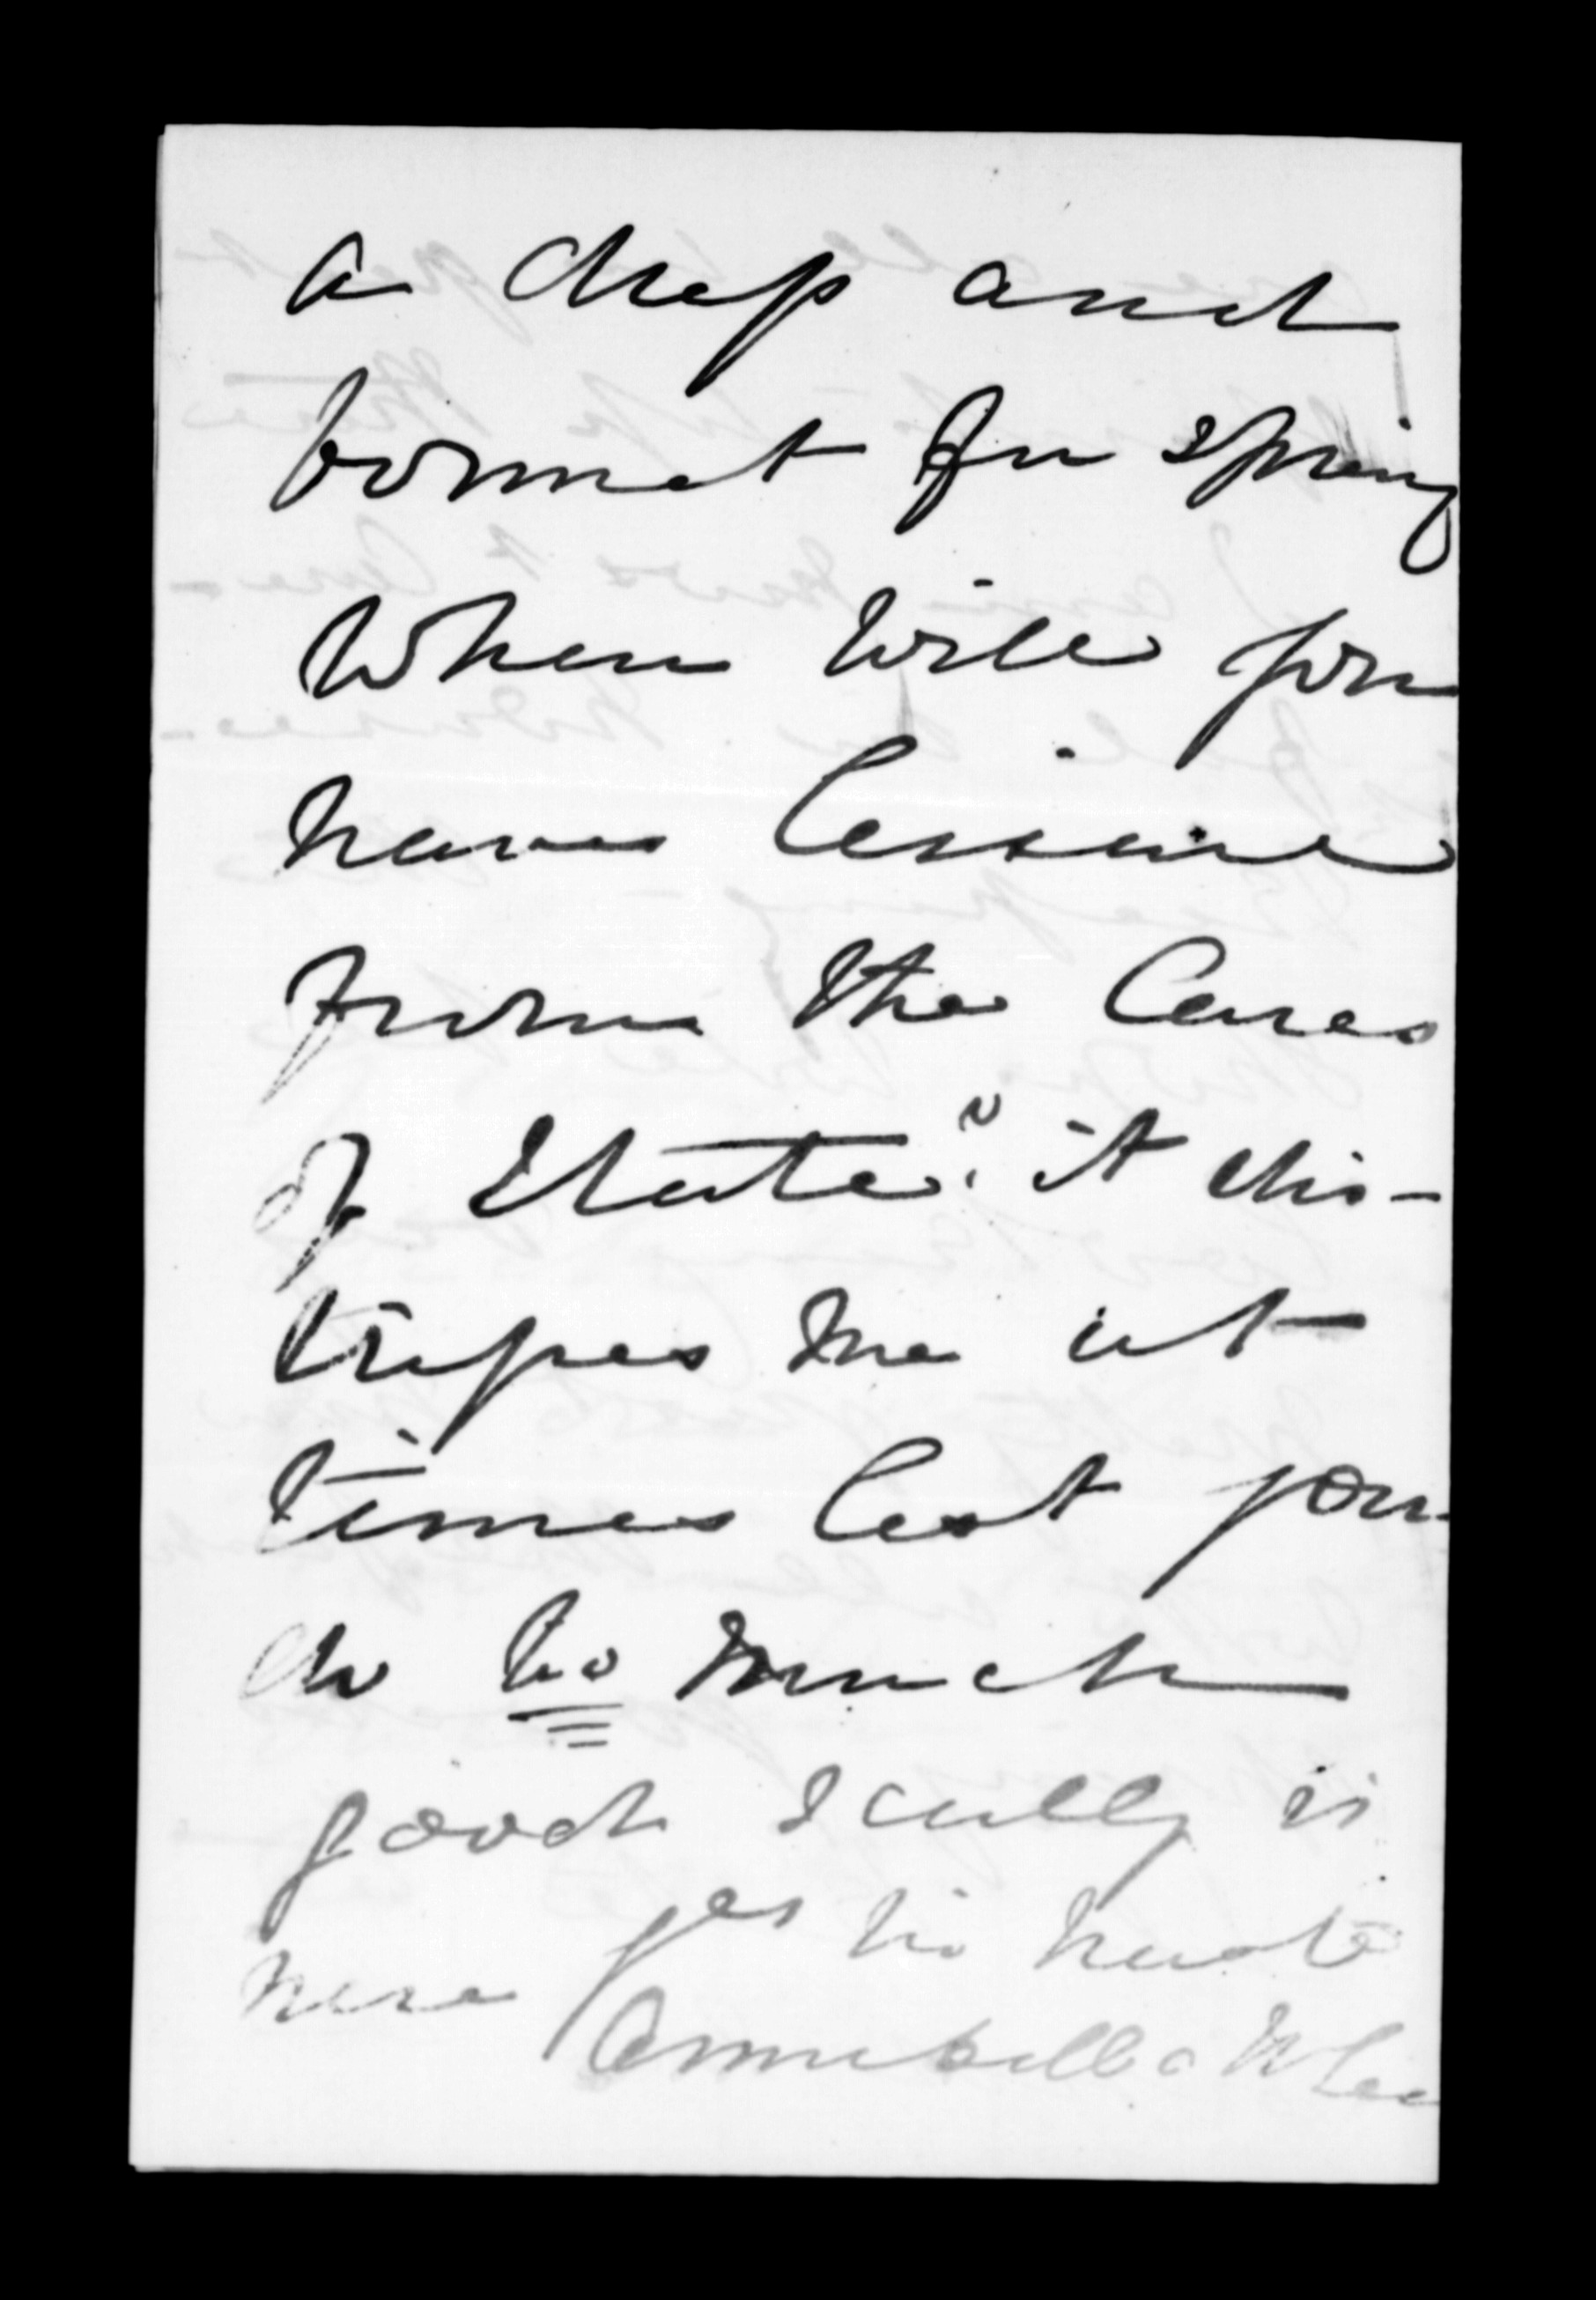 a dress and
bonnet for spring
When will you
have leisure
from the Cares
of State." it dis-
tresses me at
times lest you
do too much
good Scully is
here yes his
Annabella McLean